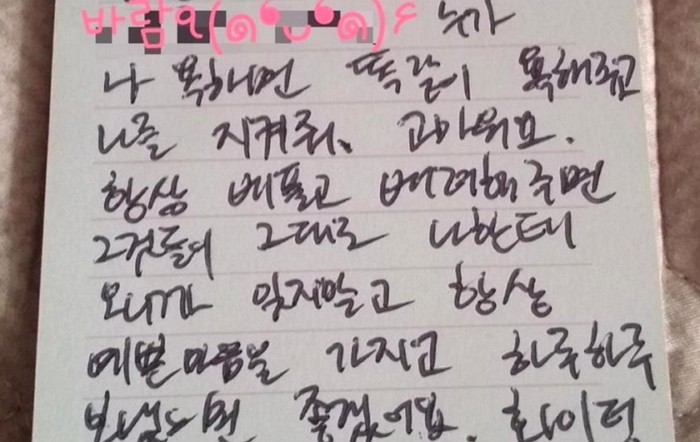 바람q(๑❛ᴗ❛๑)۶ 누가
나 욕하면 똑같이 욕해주고
나를 지켜줘. 고마워요.
항상 베풀고 배려해주면
그것들이 그대로 나한테
오니까 잊지말고 항상
예쁜마음을 가지고 하루하루
보냈으면 좋겠어요. 화이팅